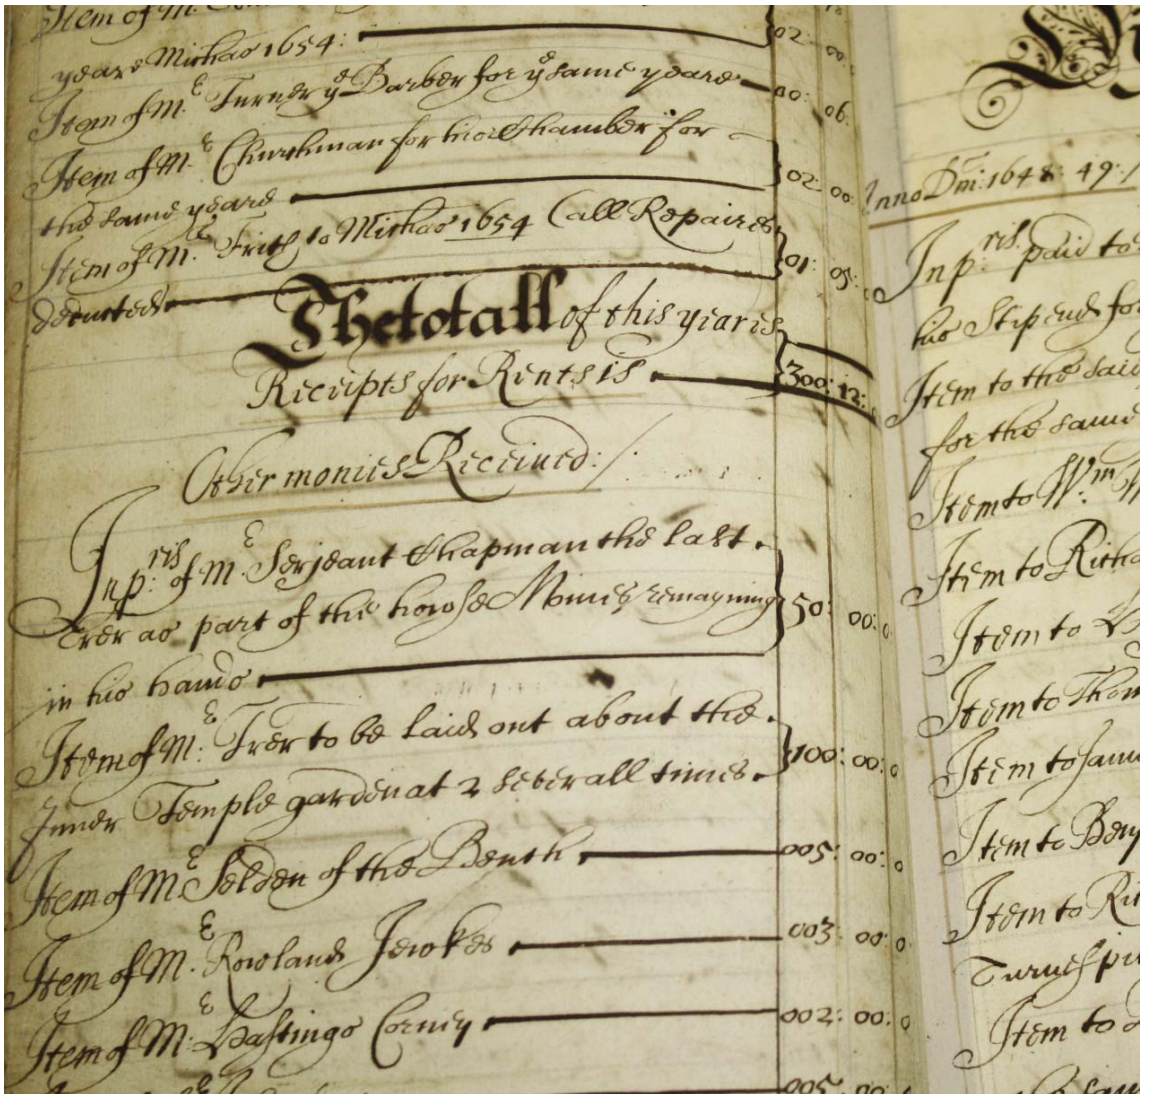 Item of Mr.
yeare Michas 1654: 02 00
Item of Mr. Turner ye Barber for ye same yeare 00: 06:
Item of Mr. Churchman for his Chamber for
the same yeare 02: 00:
Item of Mr. Frith to Michas 1654 (all Repaires
deducted 01: 05:
The totall of this yeares
Receipts for Rents is 300: 12:
Other monies Received:/
Inp:ris of Mr. Serjeant Chapman the last
Trer as part of the howse Monies remayning 50: 00: 0
in his hands
Item of Mr. Trer to be laid out about the
Inner Temple garden at 2 severall times 100: 00: 0
Item of Mr. Selden of the Bench 005: 00: 0
Item of Mr. Rowland Jewkes 003: 00: 0
Item of Mr. Hastings Corney 002: 00: 0
005: 00:
Anno Dm̄: 1648: 49:/
Inp:ris paid to
his Stipend for
Item to the said
for the same
Item to Wm.
Item to Richa
Item to
Item to Thom
Item to Samu
Item to Benj
Item to Ric
Turnespi
Item to